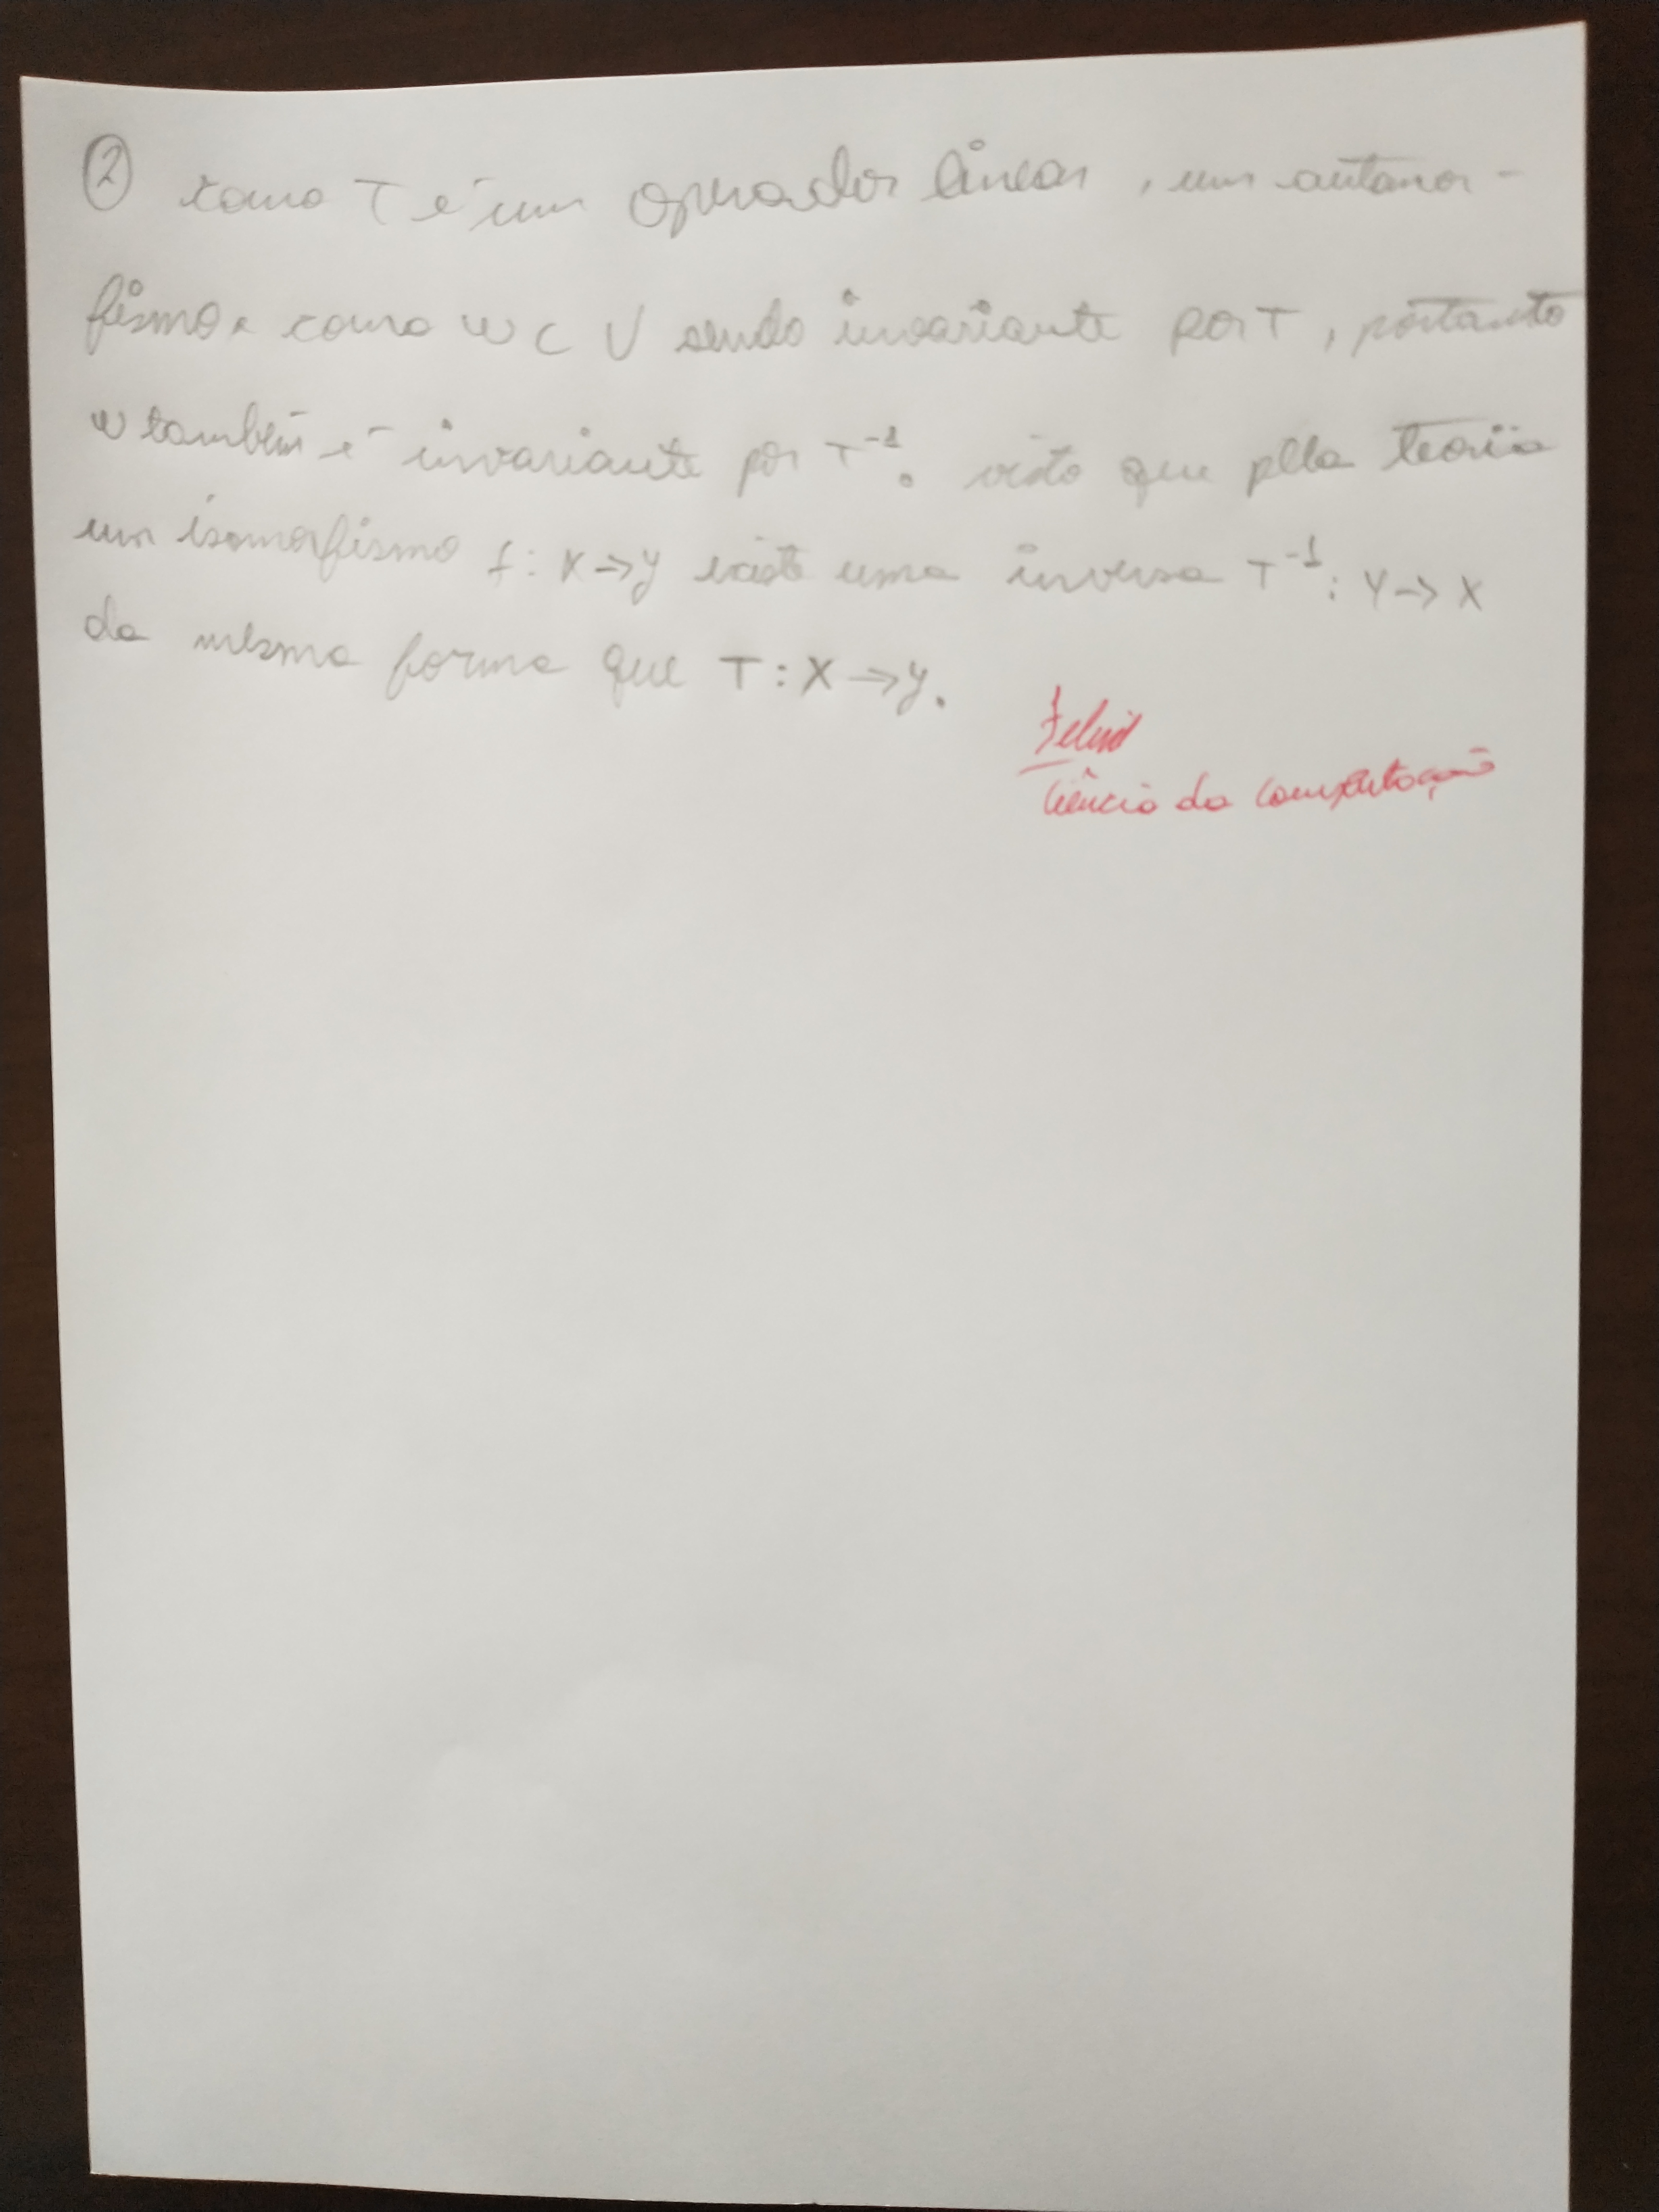 ② como T é um operador linear, um automor-
fismo e como W ⊂ V sendo invariante por T, portanto
W também é invariante por T⁻¹. visto que pela teoria
um isomorfismo f: X → Y existe uma inversa T⁻¹: Y → X
da mesma forma que T: X → Y.
Ciência da computação